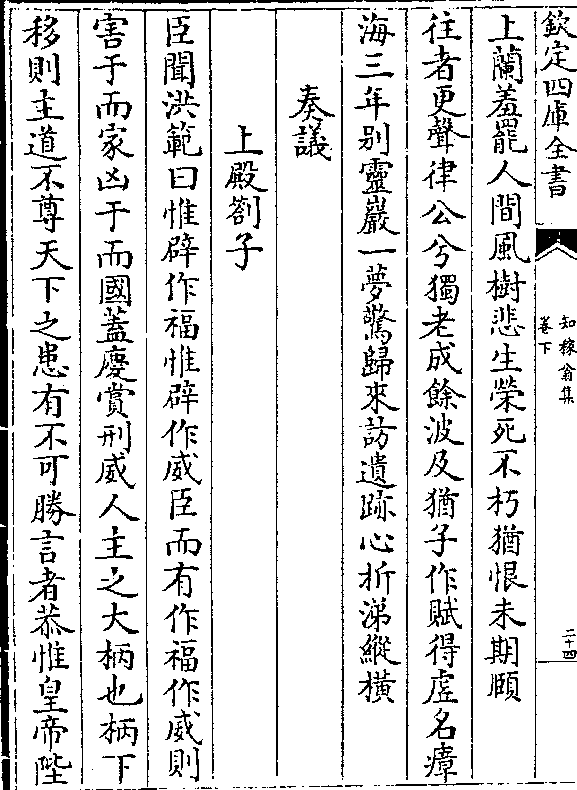 欽定四庫全書
知稼翁集
卷下
二十四
上蘭羞罷人間風樹悲生榮死不朽猶恨未期頤
往者更聲律公兮獨老成餘波及猶子作賦得虛名瘴
海三年别靈巖一夢驚歸來訪遺跡心折涕縱橫
奏議
上殿劄子
臣聞洪範曰惟辟作福惟辟作威臣而有作福作威則
害于而家凶于而國蓋慶賞刑威人主之大柄也柄下
移則主道不尊天下之患有不可勝言者恭惟皇帝陛